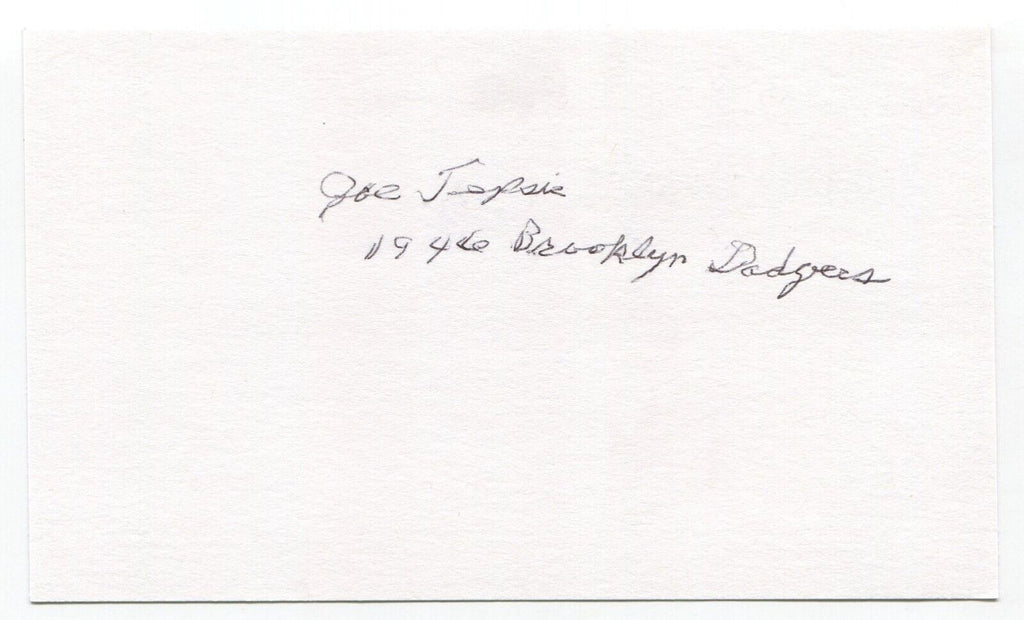 Joe Tepsic
1946 Brooklyn Dodgers